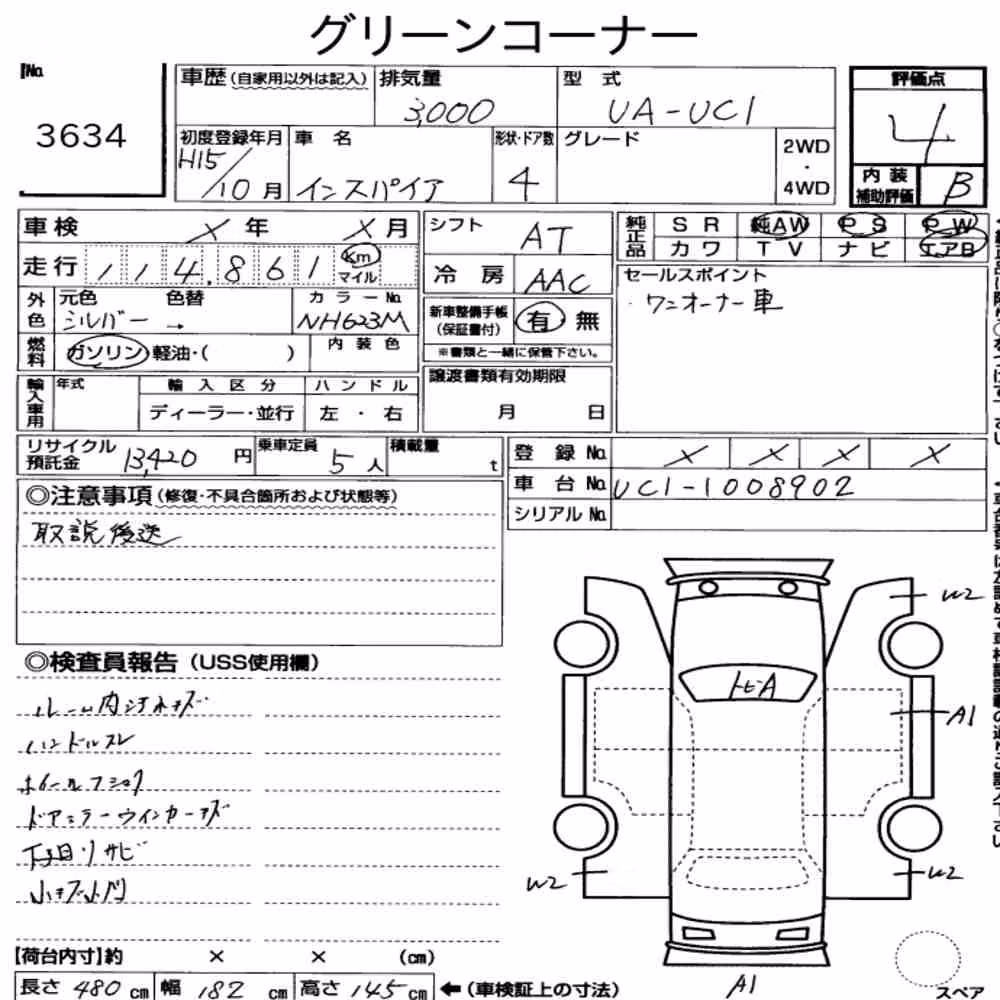 グリーンコーナー
No.
3634
車歴(自家用以外は記入)
排気量
3,000
型 式
UA-UC1
評価点
4
初度登録年月
H15/10月
車 名
インスパイア
形状・ドア数
4
グレード
2WD
・
4WD
内 装
補助評価
B
車検 × 年 × 月
走行 114,861 Km
マイル
外色
元色 色替
シルバー →
カラーNo.
NH623M
燃料
ガソリン 軽油・( )
内 装 色
輸入車用
年式
輸 入 区 分
ディーラー・並行
ハ ン ド ル
左 ・ 右
シフト AT
冷 房 AAC
新車整備手帳
(保証書付)
有 無
※書類と一緒に保管下さい。
譲渡書類有効期限
月 日
純正品
S R 純AW P S P W
カ ワ T V ナ ビ エアB
セールスポイント
・ワンオーナー車
リサイクル
預託金 13,420 円
乗車定員 5 人
積載量 t
登 録 No. × × × ×
車 台 No. UC1-1008902
シリアル No.
◎注意事項(修復・不具合箇所および状態等)
取説後送
◎検査員報告(USS使用欄)
ルーム内汚れキズ
ハンドルスレ
ホイールフショク
ドアミラーウインカーキズ
下回りサビ
小キズ小凹
トビA
W2
A1
W2
W2
A1
スペア
【荷台内寸】約 × × (cm)
長さ 480 cm 幅 182 cm 高さ 145 cm ←(車検証上の寸法)